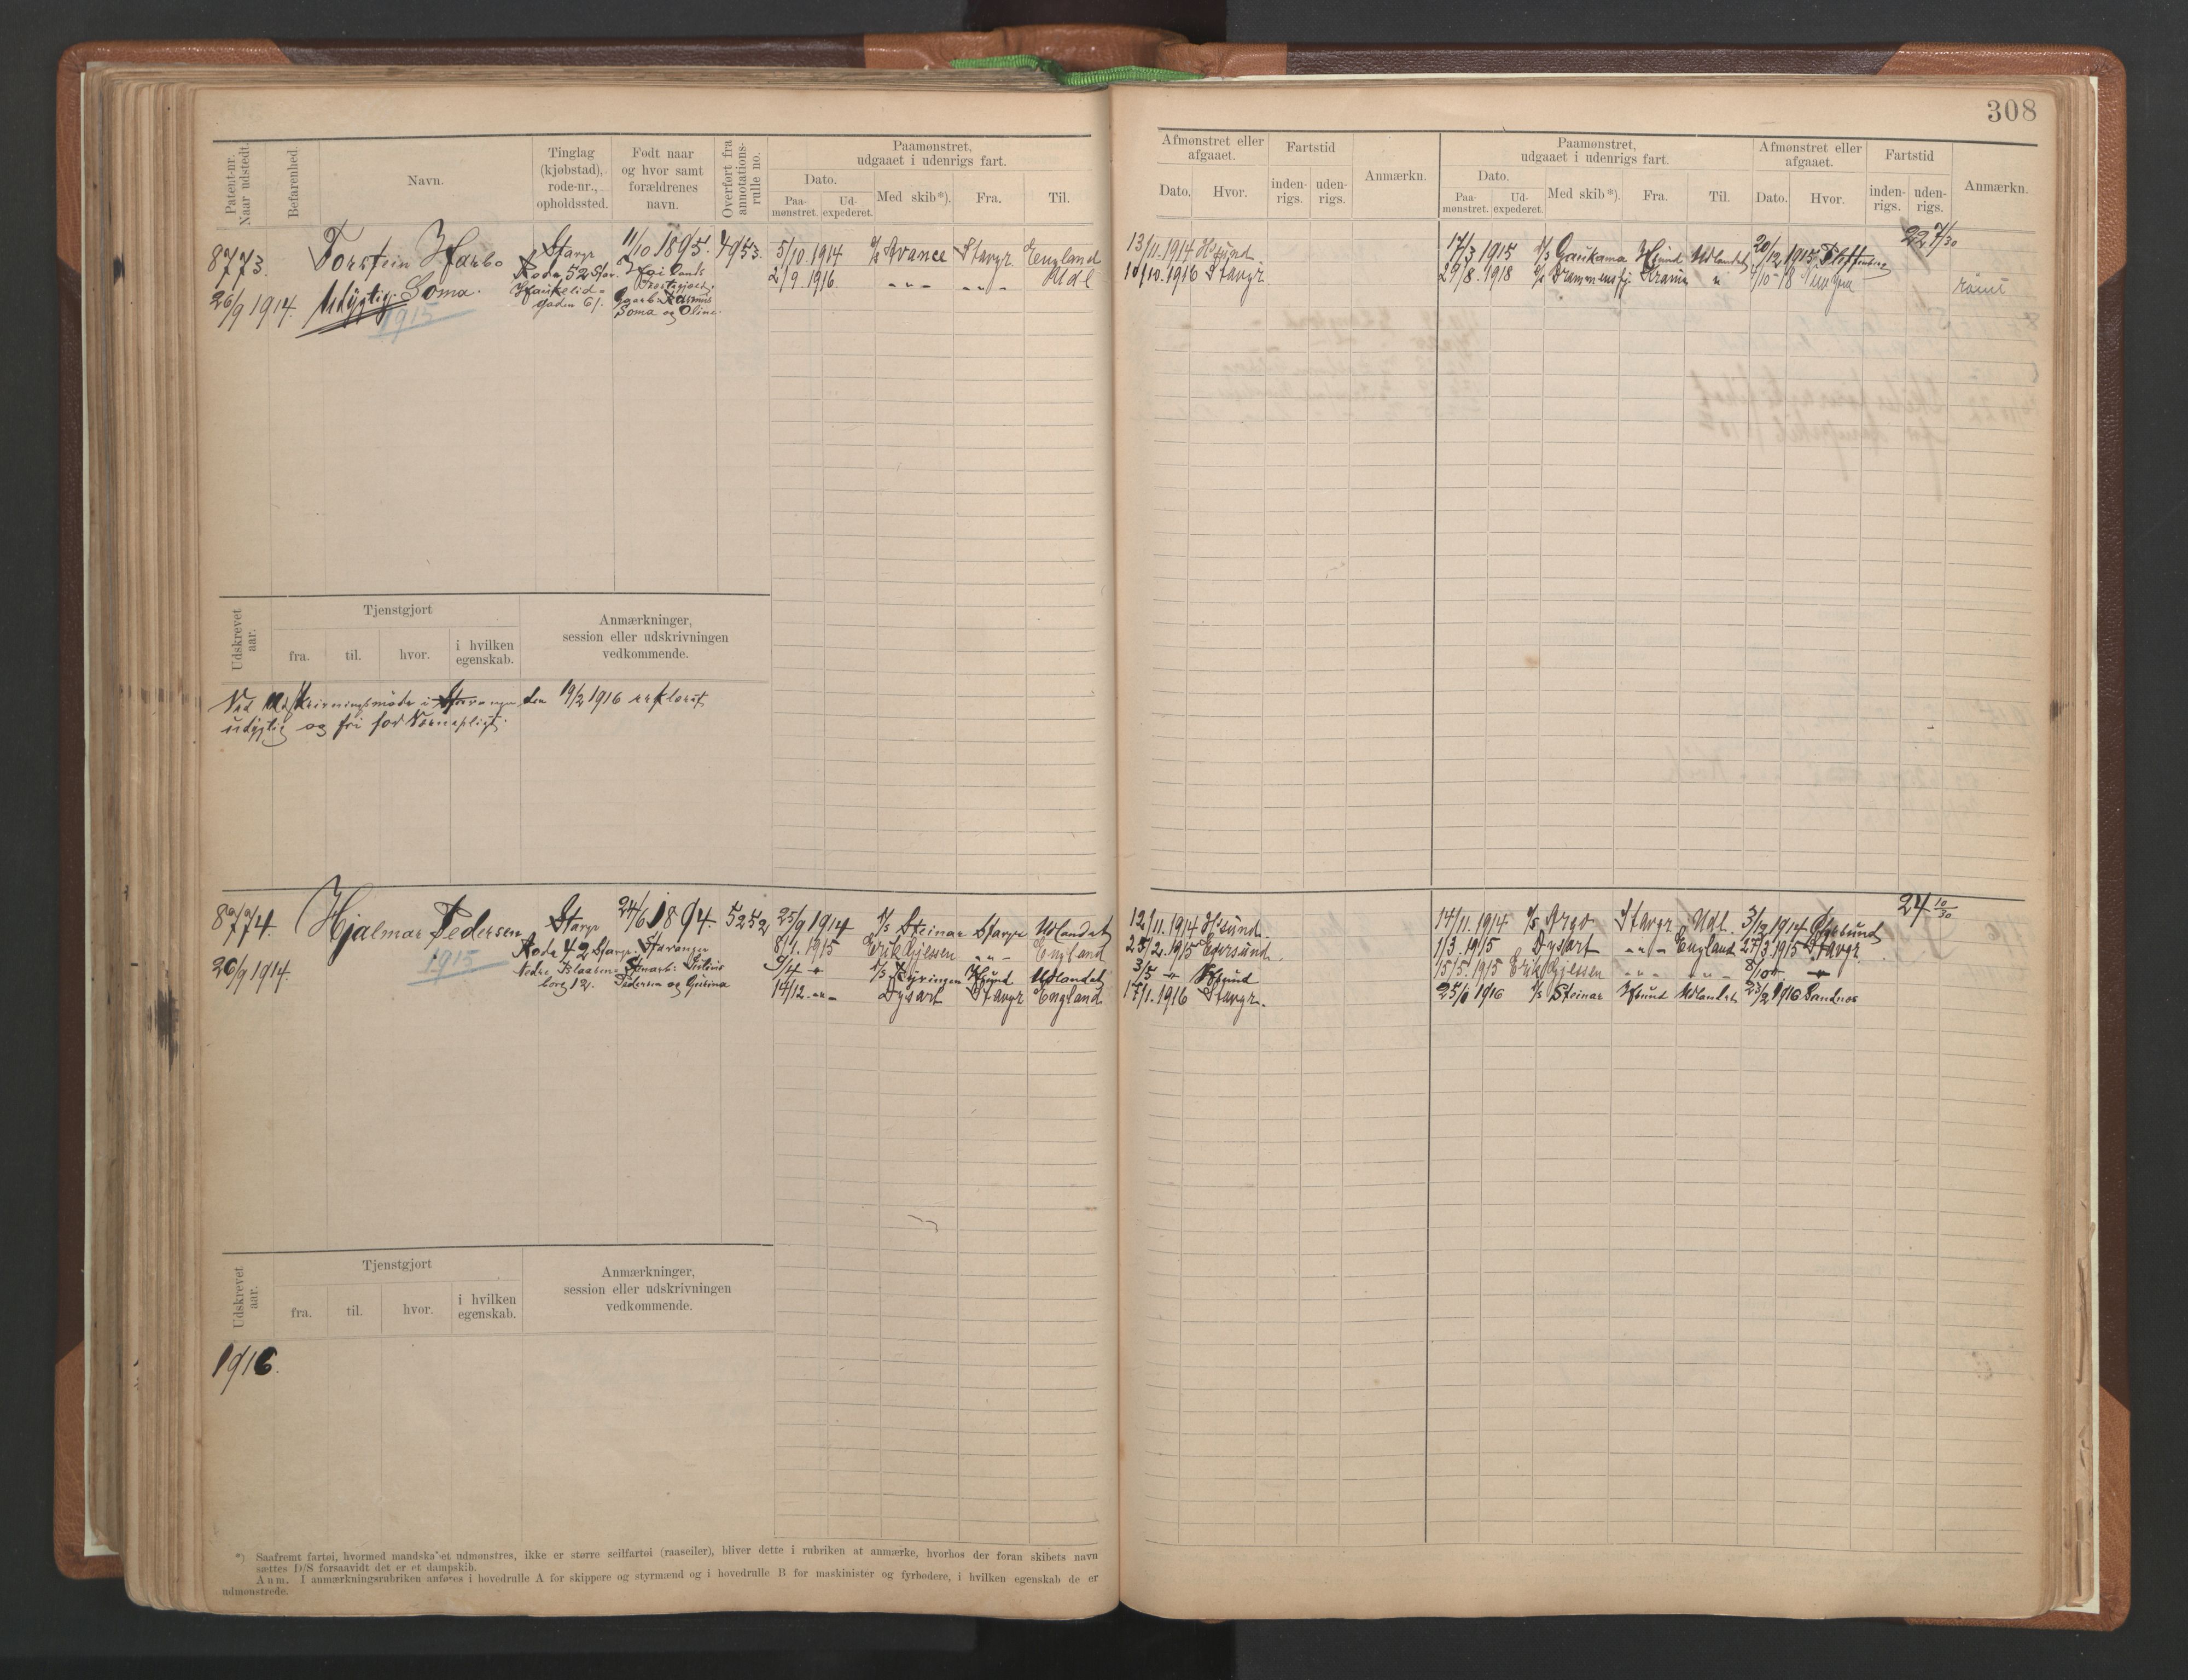 308
Patent-nr.
Naar udstedt.
Befarenhed.
Navn.
Tinglag
(kjøbstad),
rode-nr.,
opholdssted.
Født naar
og hvor samt
forældrenes
navn.
Overført fra
annotations-
rulle no.
Paamønstret,
udgaaet i udenrigs fart.
Dato.
Paa-
mønstret.
Ud-
expederet.
Med skib*).
Fra.
Til.
Afmønstret eller
afgaaet.
Dato.
Hvor.
Fartstid
inden-
rigs.
uden-
rigs.
Anmærkn.
Paamønstret,
udgaaet i udenrigs fart.
Dato.
Paa-
mønstret.
Ud-
expederet.
Med skib*).
Fra.
Til.
Afmønstret eller
afgaaet.
Dato.
Hvor.
Fartstid
inden-
rigs.
uden-
rigs.
Anmærkn.
8773.
26/9 1914.
Torstein Harbo
Soma.
Udygtig.
1915
Stavgr
Rode 52 Stav.
Haukelid-
gaden 61.
11/10 1895.
Høilands
Rasmus
Soma og Oline.
4953.
5/10 1914 Avance Stavgr. England
2/9 1916 - " - - " - Udl
13/11 1914 H'sund.
10/10 1916 Stavgr.
17/3 1915 Haukama H'sund Udlandet 20/12 1915
29/8 1918 Drammensfj. Krania " 4/10 - 18 New York
rømt
22 7/30
Udskrevet
aar.
Tjenstgjort
fra.
til.
hvor.
i hvilken
egenskab.
Anmærkninger,
session eller udskrivningen
vedkommende.
Ved Udskrivningsmøde i Stavanger den 19/2 1916 erklæret
udygtig og fri for Værnepligt.
8774.
26/9 1914.
Hjalmar Pedersen
1915
Stavgr
Rode 42 Stavgr.
Nedre Blaasen-
borg 12.
24/6 1894.
Stavanger
Pedersen og Gurina
5252
25/9 1914 D/s Steinar Stavgr Udlandet
8/1 1915 Erik Gjessen - " - England
9/4 - " D/s Kyvingen H'sund Udlandet
14/12 - " - Dysart Stavgr England.
12/11 1914 H'sund.
23/2 1915 Egersund.
3/5 - " - H'sund
17/1 1916 Stavgr.
14/11 1914 D/s Argo Stavgr Udl. 3/12 1914
1/3 1915 Dysart - " - England 27/3 1915 Stavgr.
15/5 1915 Erik Gjessen - " - - " - 8/10 - " - "
25/1 1916 D/s Steinar H'sund Udlandet 23/2 1916 Sandnes
24 10/30
Udskrevet
aar.
Tjenstgjort
fra.
til.
hvor.
i hvilken
egenskab.
Anmærkninger,
session eller udskrivningen
vedkommende.
1916.
*) Saafremt fartøi, hvormed mandskabet udmønstres, ikke er større seilfartøi (raaseiler), bliver dette i rubriken at anmærke, hvorhos der foran skibets navn
sættes D/S forsaavidt det er et dampskib.
Anm. I anmærkningsrubriken anføres i hovedrulle A for skippere og styrmænd og i hovedrulle B for maskinister og fyrbødere, i hvilken egenskab de er
udmønstrede.